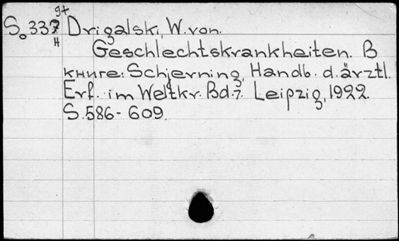 S₀337 Drigalski, W. von.
H
Geschlechtskrankheiten. В
книге: Schjerning, Handb. d. ärztl.
Erf. im Weltkr. Bd. 7. Leipzig, 1922.
S. 586-609.